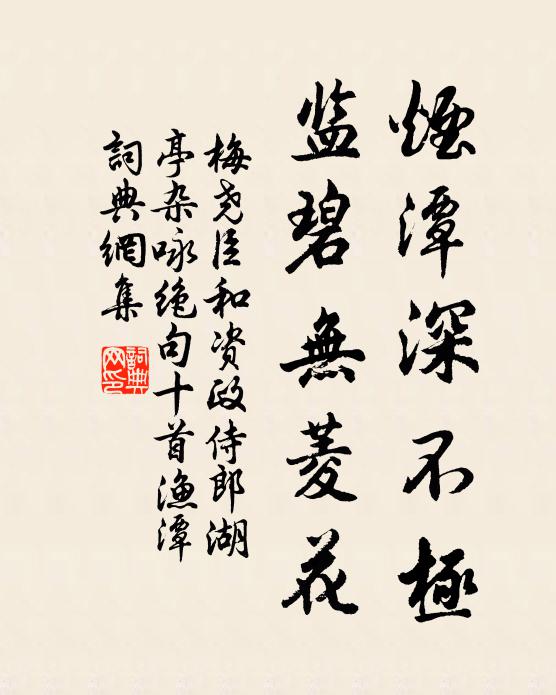 煙潭深不極
监碧無菱花
梅尧臣和资政侍郎湖
亭杂咏绝句十首渔潭
詞典網集
詞典
网印